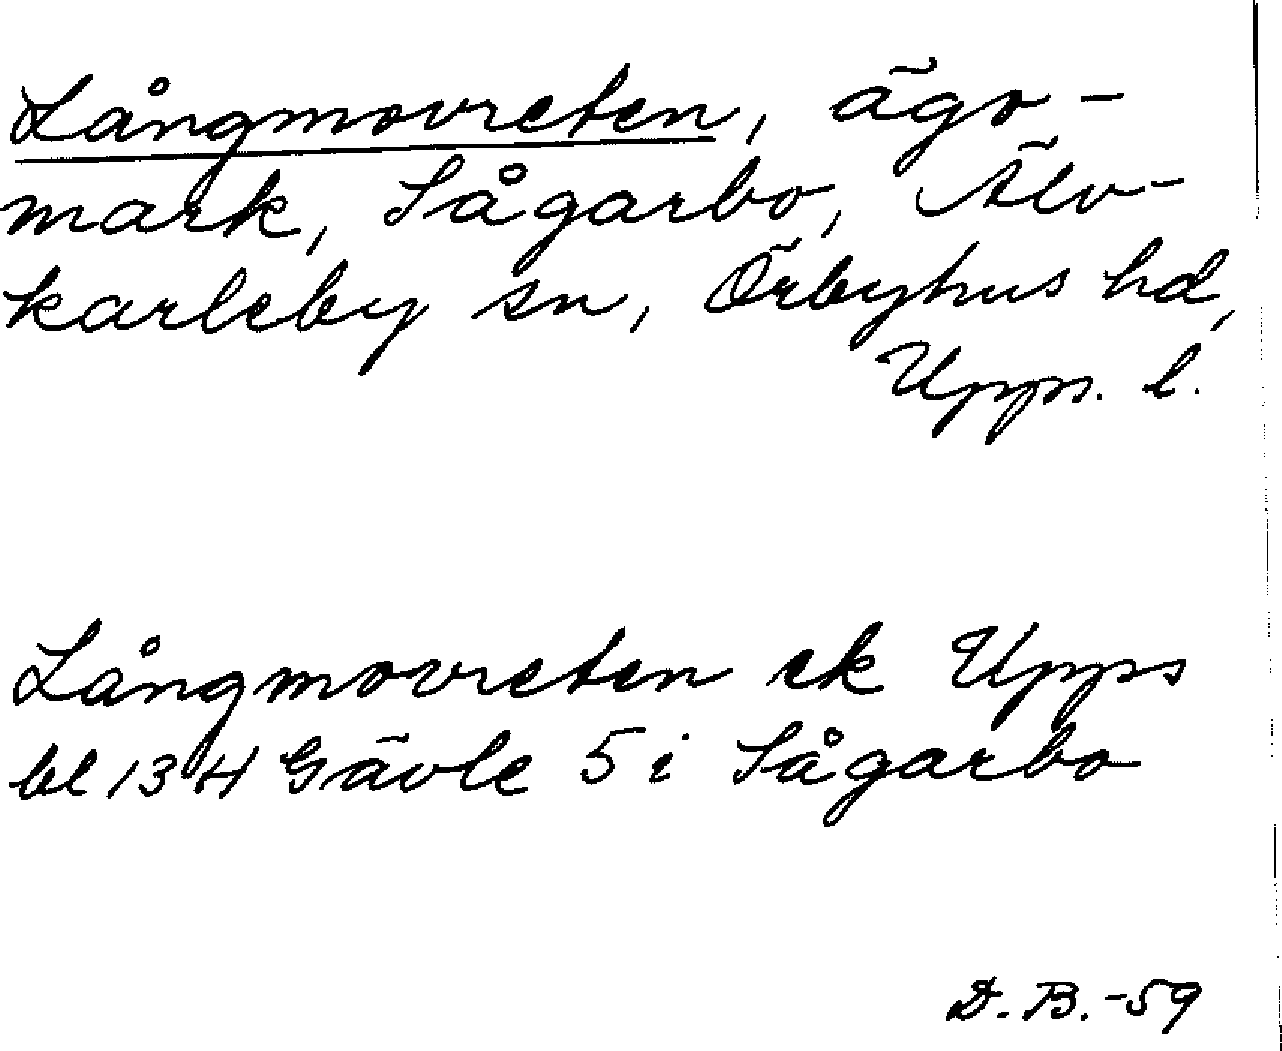 Långmovreten, ägo-
mark, Sågarbo, Älv-
karleby sn, Örbyhus hd,
Upps. l.
Långmovreten ek Upps
bl 13 H Gävle 5 i Sågarbo
D. B. -59